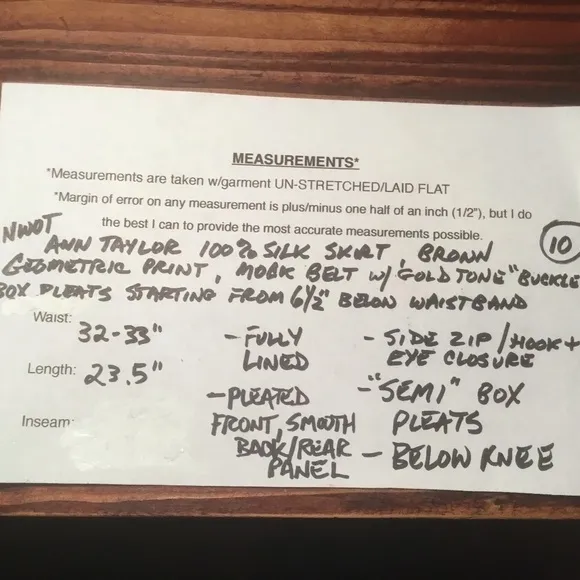 MEASUREMENTS*
*Measurements are taken w/garment UN-STRETCHED/LAID FLAT
*Margin of error on any measurement is plus/minus one half of an inch (1/2"), but I do
the best I can to provide the most accurate measurements possible.
NWOT
10
ANN TAYLOR 100% SILK SKIRT, BROWN
GEOMETRIC PRINT, MOCK BELT W/ GOLD TONE "BUCKLE
BOX PLEATS STARTING FROM 6½" BELOW WAISTBAND
Waist: 32-33"
Length: 23.5"
Inseam:
- FULLY
LINED
- PLEATED
FRONT, SMOOTH
BACK/REAR
PANEL
- SIDE ZIP/HOOK +
EYE CLOSURE
- "SEMI" BOX
PLEATS
- BELOW KNEE